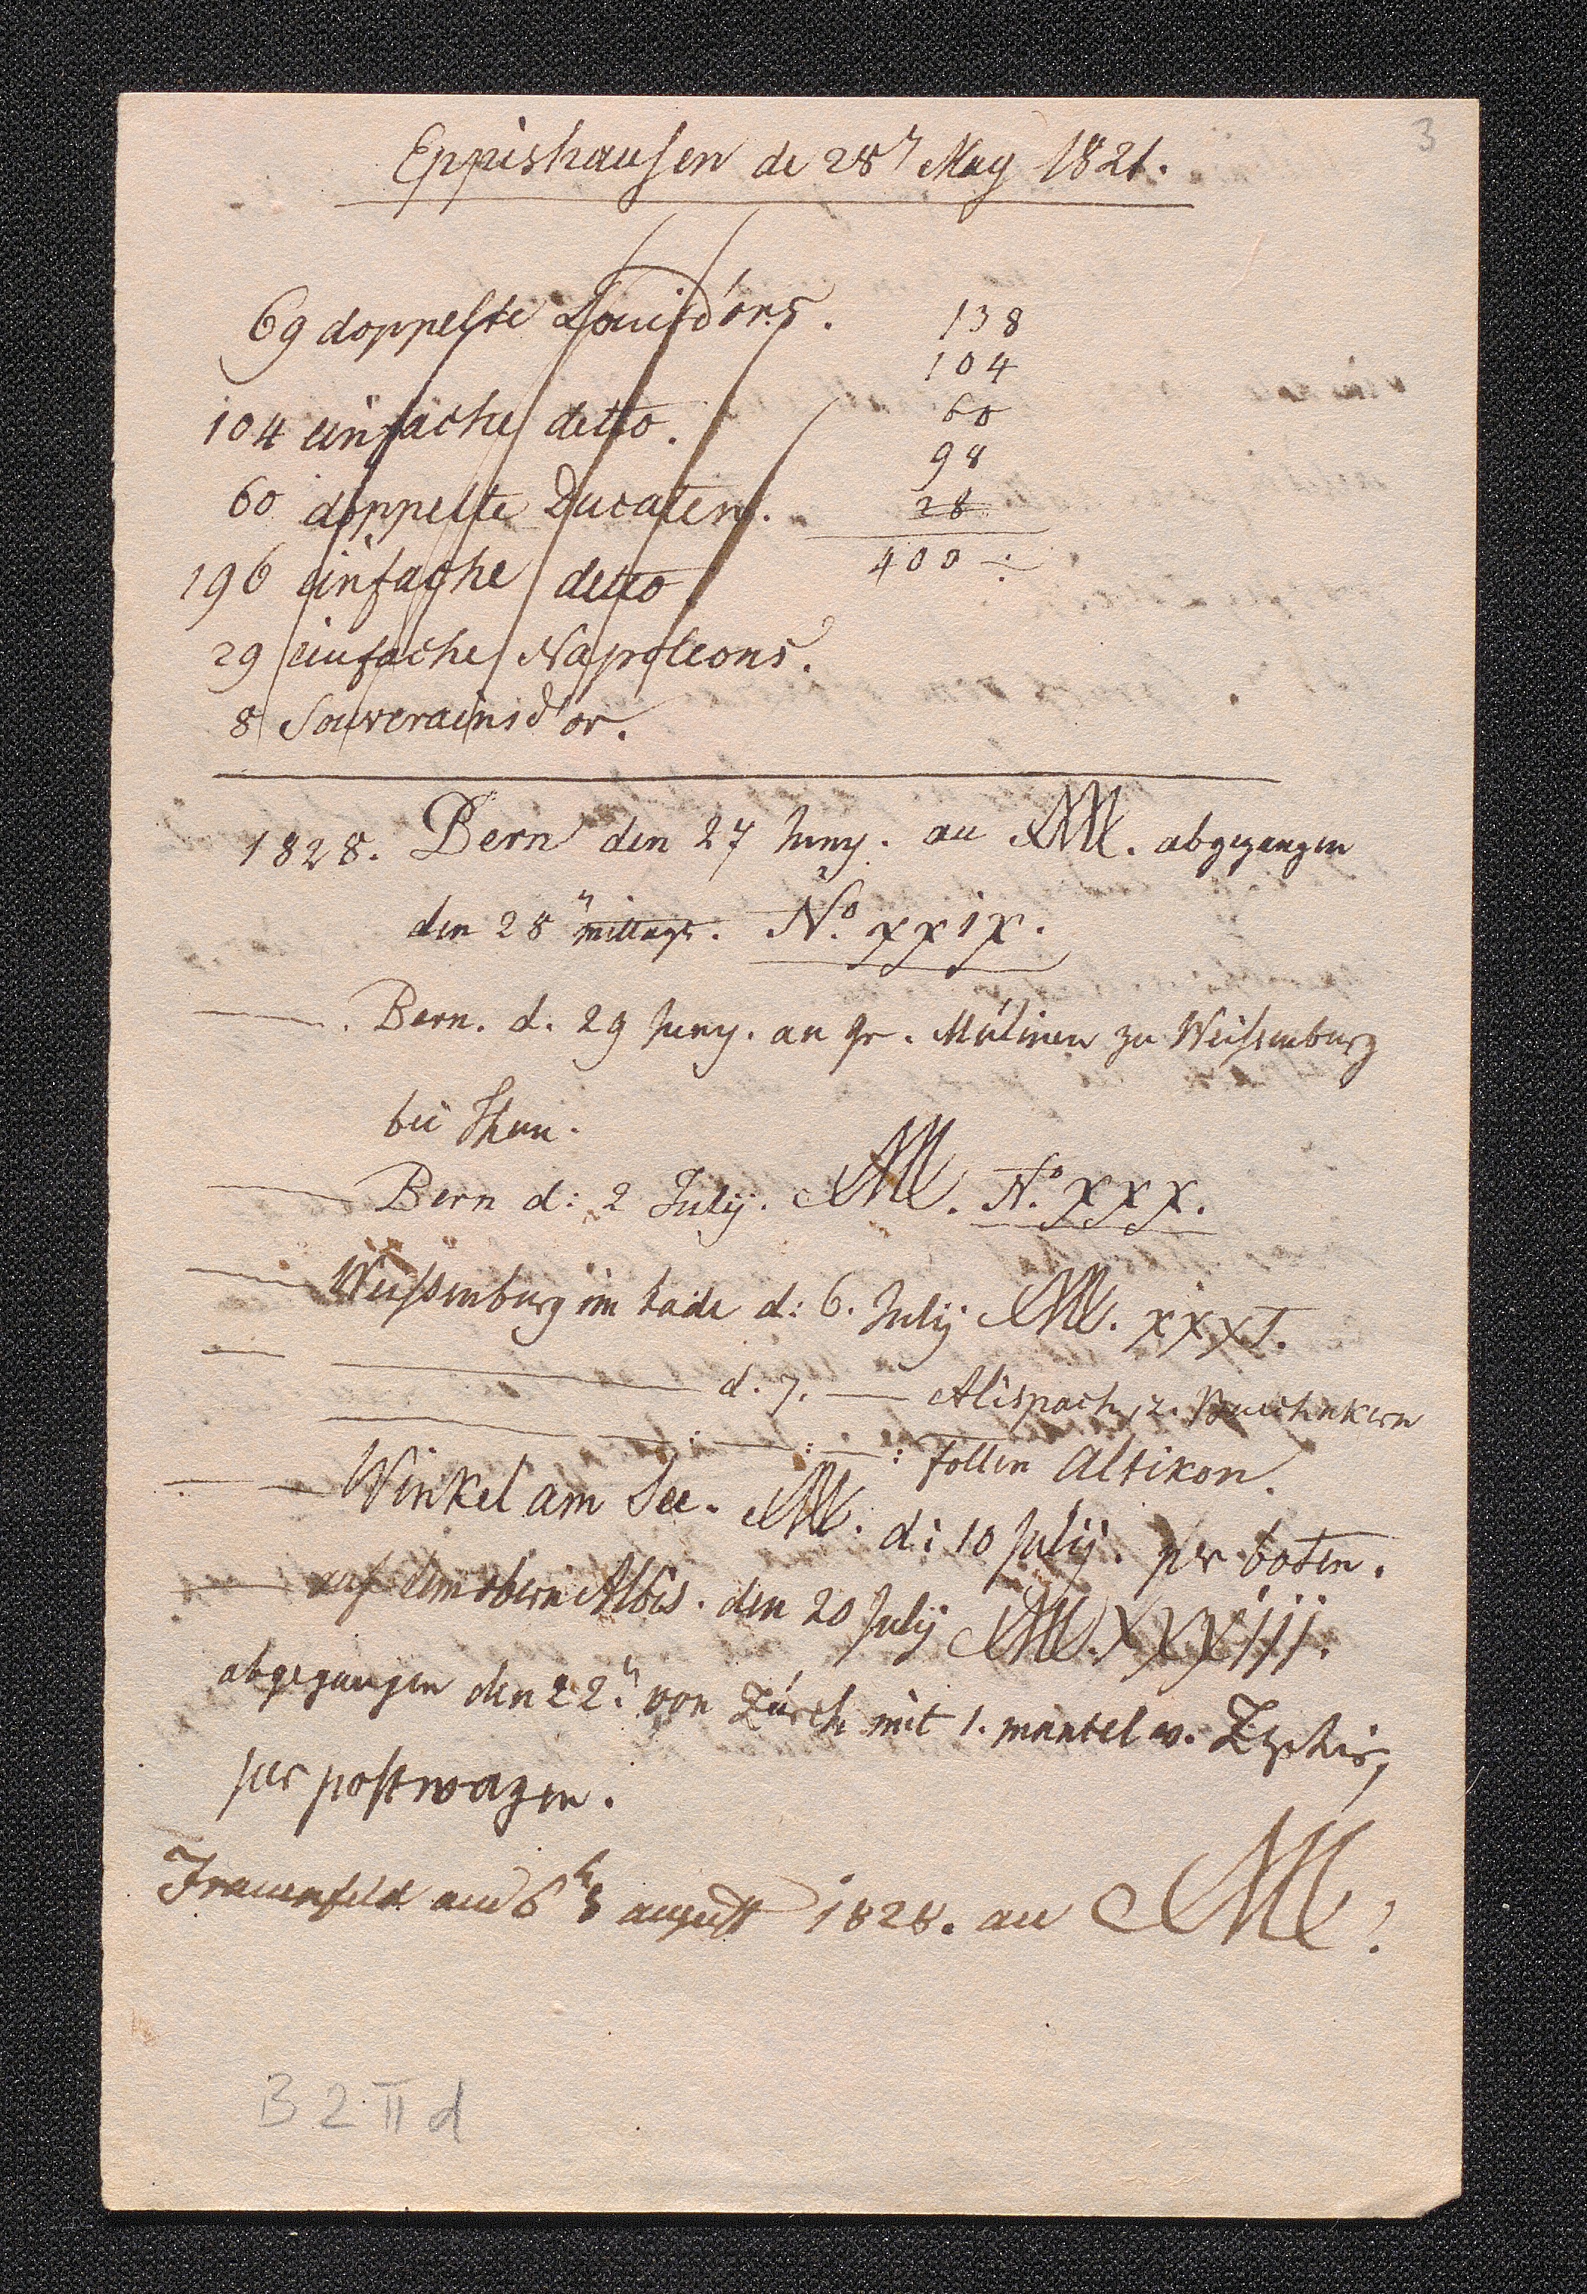 3
Eppishausen de 28n May 1821.
69 doppelte Louisd'ors. 138
104
104 einfache detto.
60
98
60 doppelte Ducaten. 28
196 einfache detto 400 ÷
29 einfache Napoleons.
8 Souverainsd'or.
1828. Bern den 27 Juny. an M. abgegangen
den 28n mittags. No. XXIX.
— . Bern. d. 29 Juny. an Hr. Mülinen zu Weissenburg
bei Thun.
— Bern d: 2 July. M. No. XXX.
— Weissenburg im bade d: 6. July M. XXXI.
— — d. 7. — Alispach, z.
— — : — : — : Follen Altikon.
— — Winkel am See. M. d: 10 July. per boten.
— auf dem obern Albis. den 20 July M. XXXiii.
abgegangen den 22n. von Zürch mit 1. mantel v. Zephir,
per postwagen.
Frauenfeld am 6 august 1828. an M.
B 2 II d